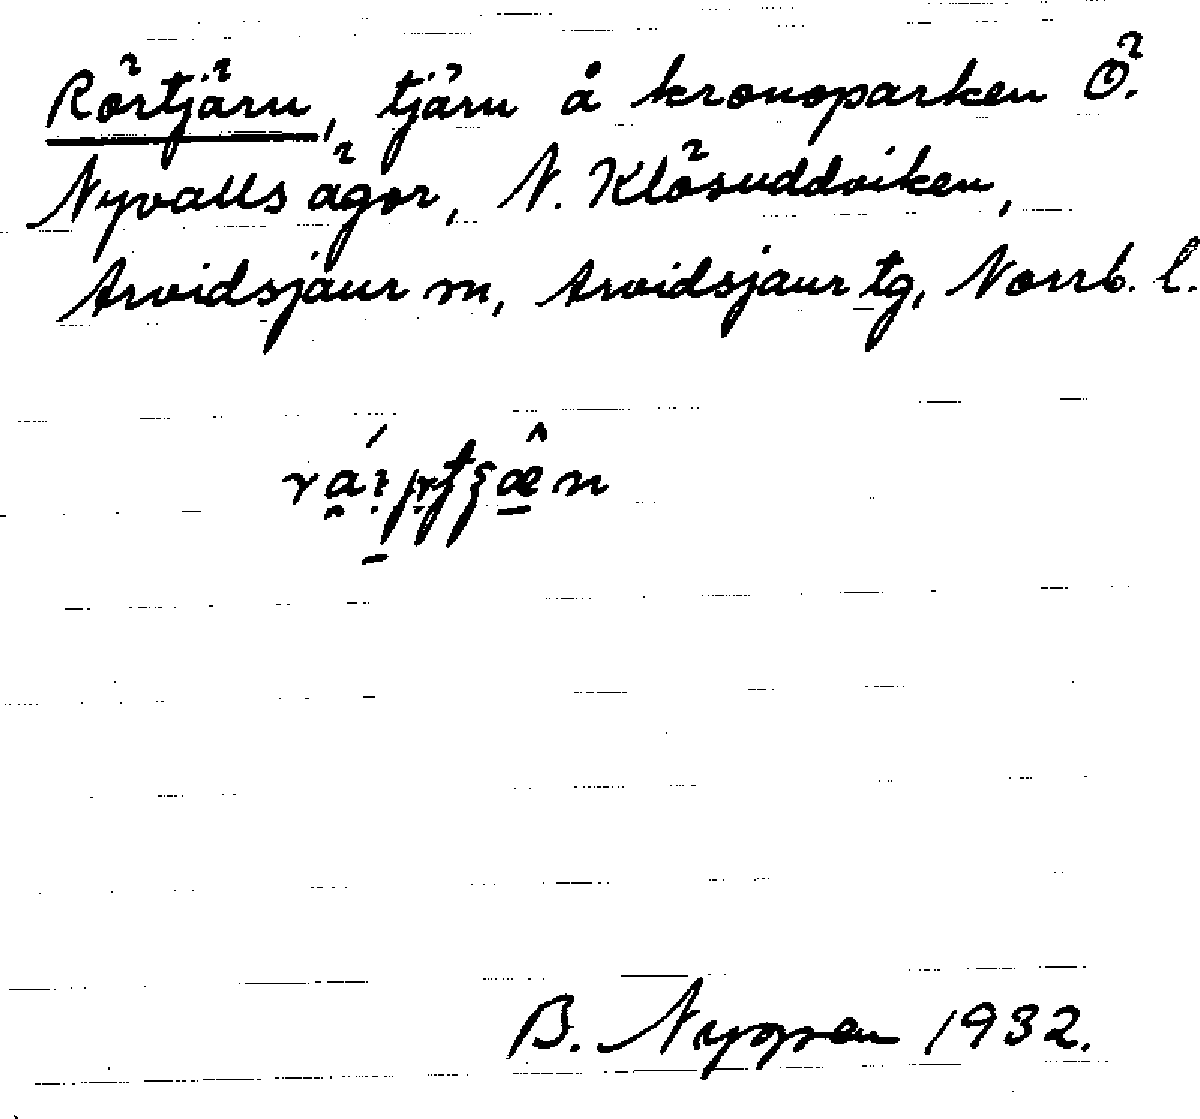 Rörtjärn, tjärn å kronoparken Ö.
Nyvalls ägor, N. Klösuddviken,
Arvidsjaur m, Arvidsjaur tg, Norrb. l.
B. Nygren 1932.